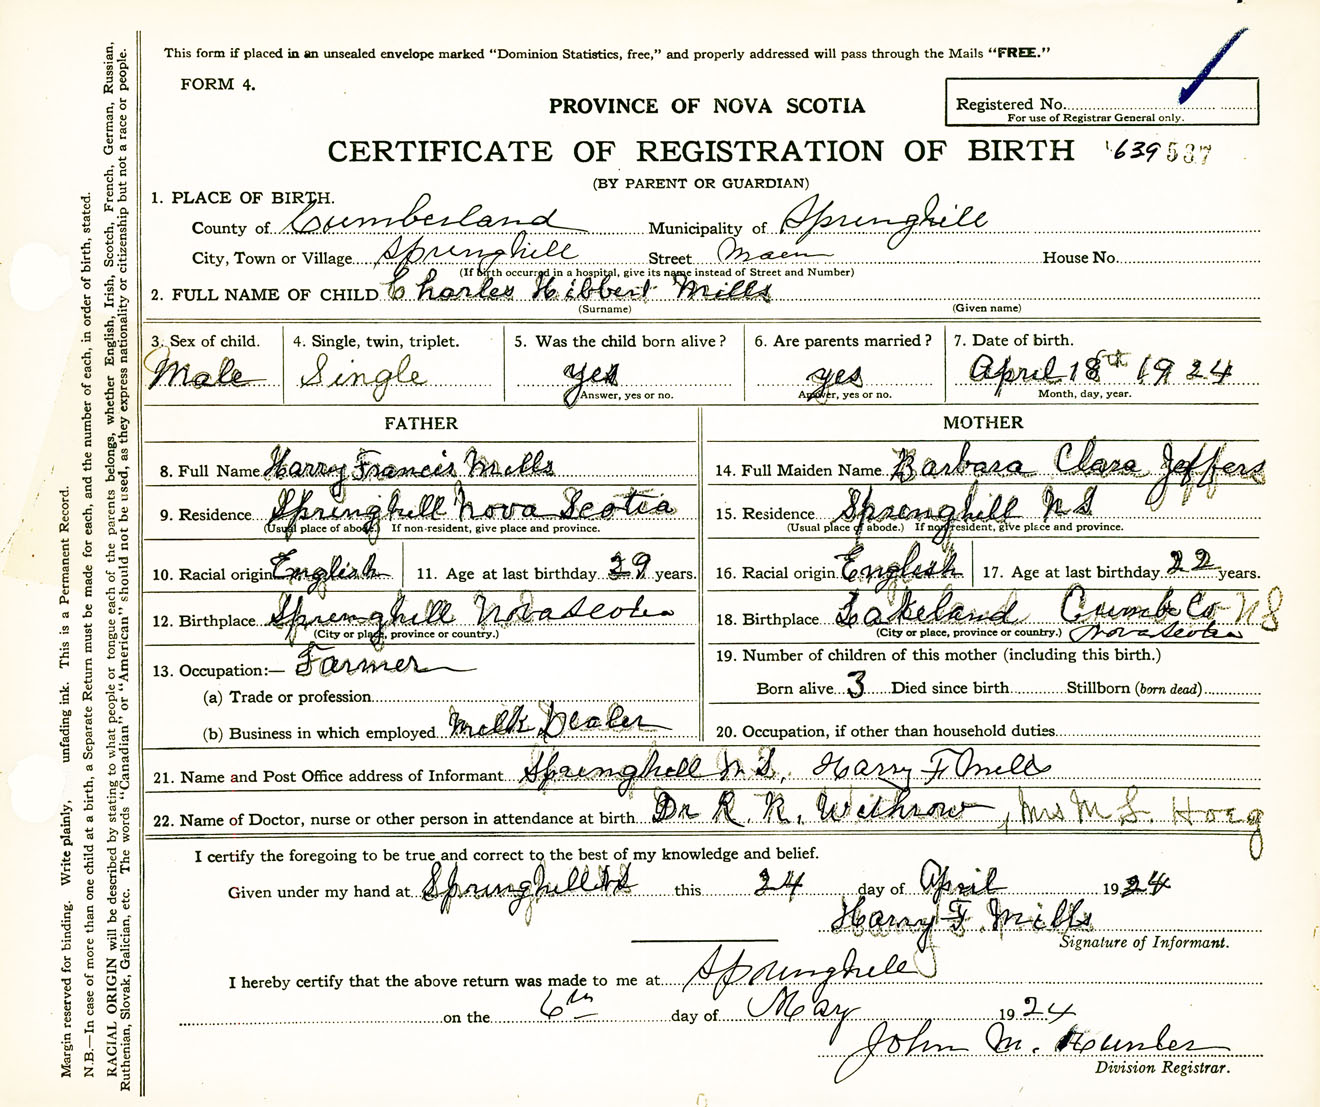 This form if placed in an unsealed envelope marked "Dominion Statistics, free," and properly addressed will pass through the Mails "FREE."
FORM 4.
PROVINCE OF NOVA SCOTIA
Registered No.
For use of Registrar General only.
CERTIFICATE OF REGISTRATION OF BIRTH 639 537
(BY PARENT OR GUARDIAN)
1. PLACE OF BIRTH.
County of Cumberland Municipality of Springhill
City, Town or Village Springhill Street Main House No.
(If birth occurred in a hospital, give its name instead of Street and Number)
2. FULL NAME OF CHILD Charles Hibbert Mills
(Surname) (Given name)
3. Sex of child. 4. Single, twin, triplet. 5. Was the child born alive? 6. Are parents married? 7. Date of birth.
Male Single yes yes April 18th 1924
Answer, yes or no. Answer, yes or no. Month, day, year.
FATHER MOTHER
8. Full Name Harry Francis Mills 14. Full Maiden Name Barbara Clara Jeffers
9. Residence Springhill Nova Scotia 15. Residence Springhill N S
(Usual place of abode.) If non-resident, give place and province. (Usual place of abode.) If non-resident, give place and province.
10. Racial origin English 11. Age at last birthday 29 years. 16. Racial origin English 17. Age at last birthday 22 years.
12. Birthplace Springhill Nova Scotia 18. Birthplace Lakeland Cumb Co N S
(City or place, province or country.) (City or place, province or country.) Nova Scotia
13. Occupation:— Farmer 19. Number of children of this mother (including this birth.)
(a) Trade or profession Born alive 3 Died since birth Stillborn (born dead)
(b) Business in which employed Milk Dealer 20. Occupation, if other than household duties
21. Name and Post Office address of Informant Springhill N S, Harry F Mills
22. Name of Doctor, nurse or other person in attendance at birth Dr R. R. Withrow, Mrs M S. Hoeg
I certify the foregoing to be true and correct to the best of my knowledge and belief.
Given under my hand at Springhill NS this 24 day of April 1924
Harry F. Mills
Signature of Informant.
I hereby certify that the above return was made to me at Springhill
on the 6th day of May 1924
John M. Hunter
Division Registrar.
Margin reserved for binding. Write plainly, unfading ink. This is a Permanent Record.
N.B.—In case of more than one child at a birth, a Separate Return must be made for each, and the number of each, in order of birth, stated.
RACIAL ORIGIN will be described by stating to what people or tongue each of the parents belongs, whether English, Irish, Scotch, French, German, Russian,
Ruthenian, Slovak, Galician, etc. The words "Canadian" or "American" should not be used, as they express nationality or citizenship but not a race or people.